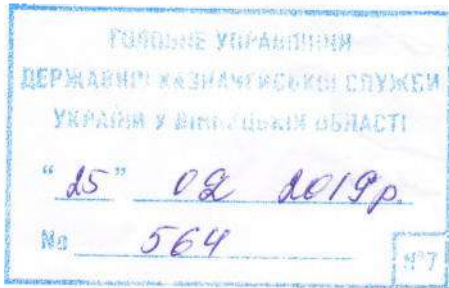 ГОЛОВНЕ УПРАВЛІННЯ
ДЕРЖАВНОЇ КАЗНАЧЕЙСЬКОЇ СЛУЖБИ
УКРАЇНИ У ВІННИЦЬКІЙ ОБЛАСТІ
"25" 02 2019р.
№ 564
№7